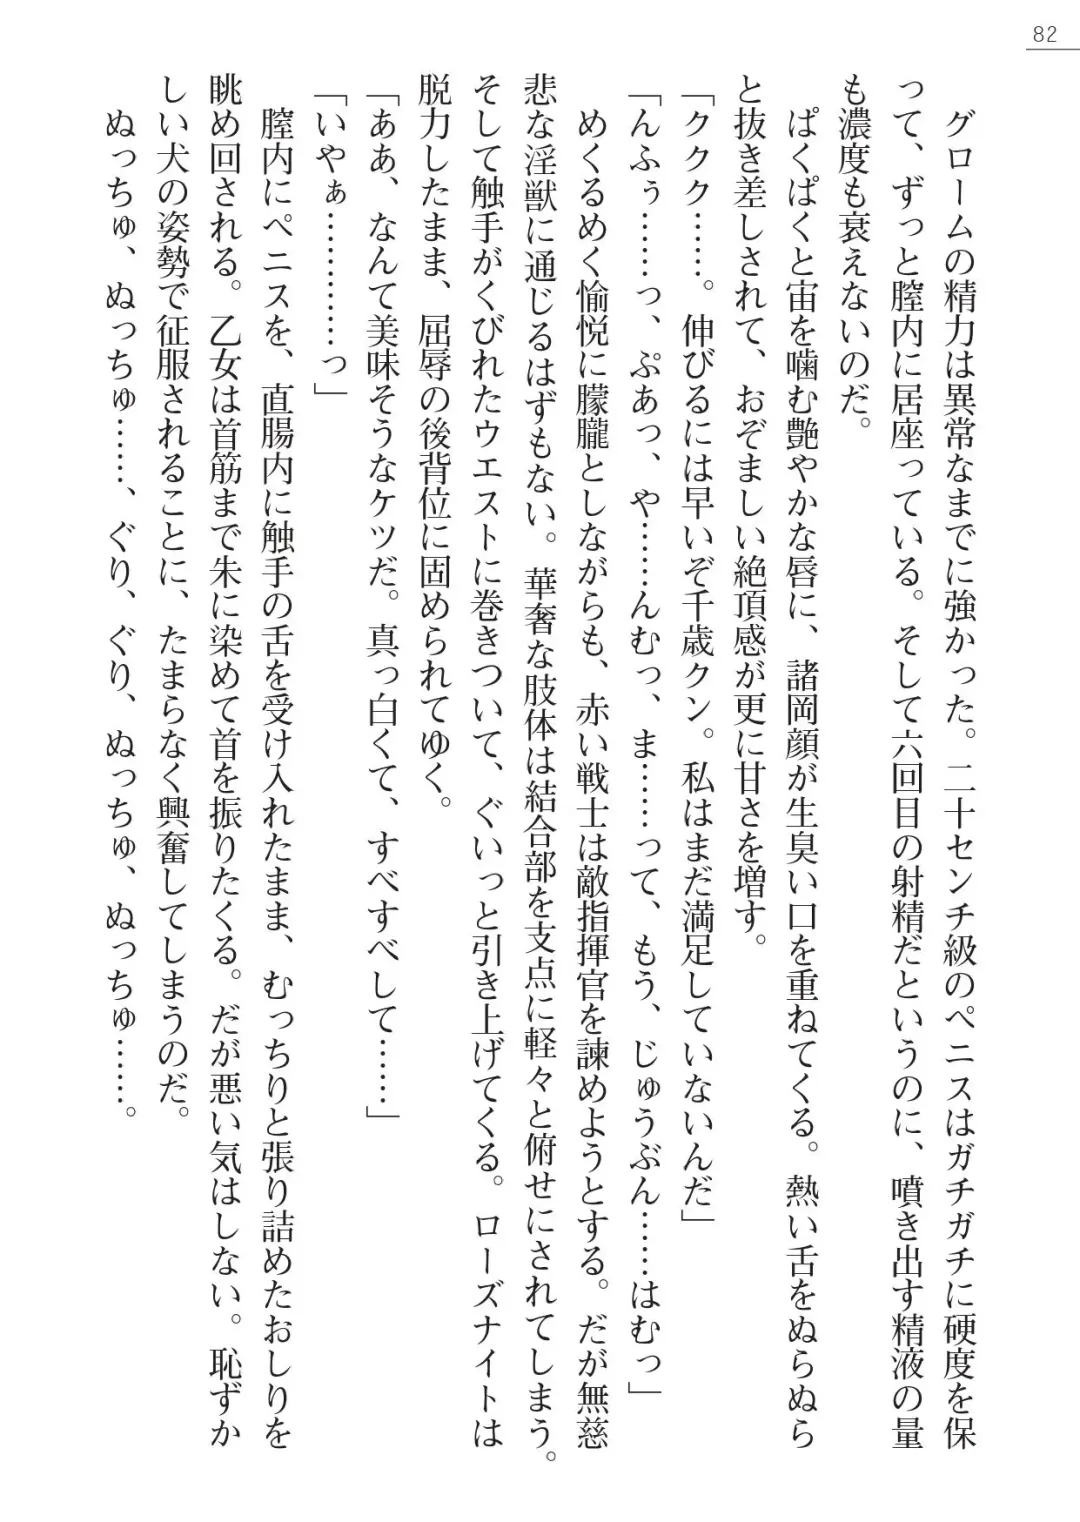 82
グロームの精力は異常なまでに強かった。二十センチ級のペニスはガチガチに硬度を保
って、ずっと膣内に居座っている。そして六回目の射精だというのに、噴き出す精液の量
も濃度も衰えないのだ。
ぱくぱくと宙を噛む艶やかな唇に、諸岡顔が生臭い口を重ねてくる。熱い舌をぬらぬら
と抜き差しされて、おぞましい絶頂感が更に甘さを増す。
「ククク……。伸びるには早いぞ千歳クン。私はまだ満足していないんだ」
「んふぅ……っ、ぷあっ、や……んむっ、ま……って、もう、じゅうぶん……はむっ」
めくるめく愉悦に朦朧としながらも、赤い戦士は敵指揮官を諫めようとする。だが無慈
悲な淫獣に通じるはずもない。華奢な肢体は結合部を支点に軽々と俯せにされてしまう。
そして触手がくびれたウエストに巻きついて、ぐいっと引き上げてくる。ローズナイトは
脱力したまま、屈辱の後背位に固められてゆく。
「ああ、なんて美味そうなケツだ。真っ白くて、すべすべして……」
「いやぁ…………っ」
膣内にペニスを、直腸内に触手の舌を受け入れたまま、むっちりと張り詰めたおしりを
眺め回される。乙女は首筋まで朱に染めて首を振りたくる。だが悪い気はしない。恥ずか
しい犬の姿勢で征服されることに、たまらなく興奮してしまうのだ。
ぬっちゅ、ぬっちゅ……、ぐり、ぐり、ぬっちゅ、ぬっちゅ……。